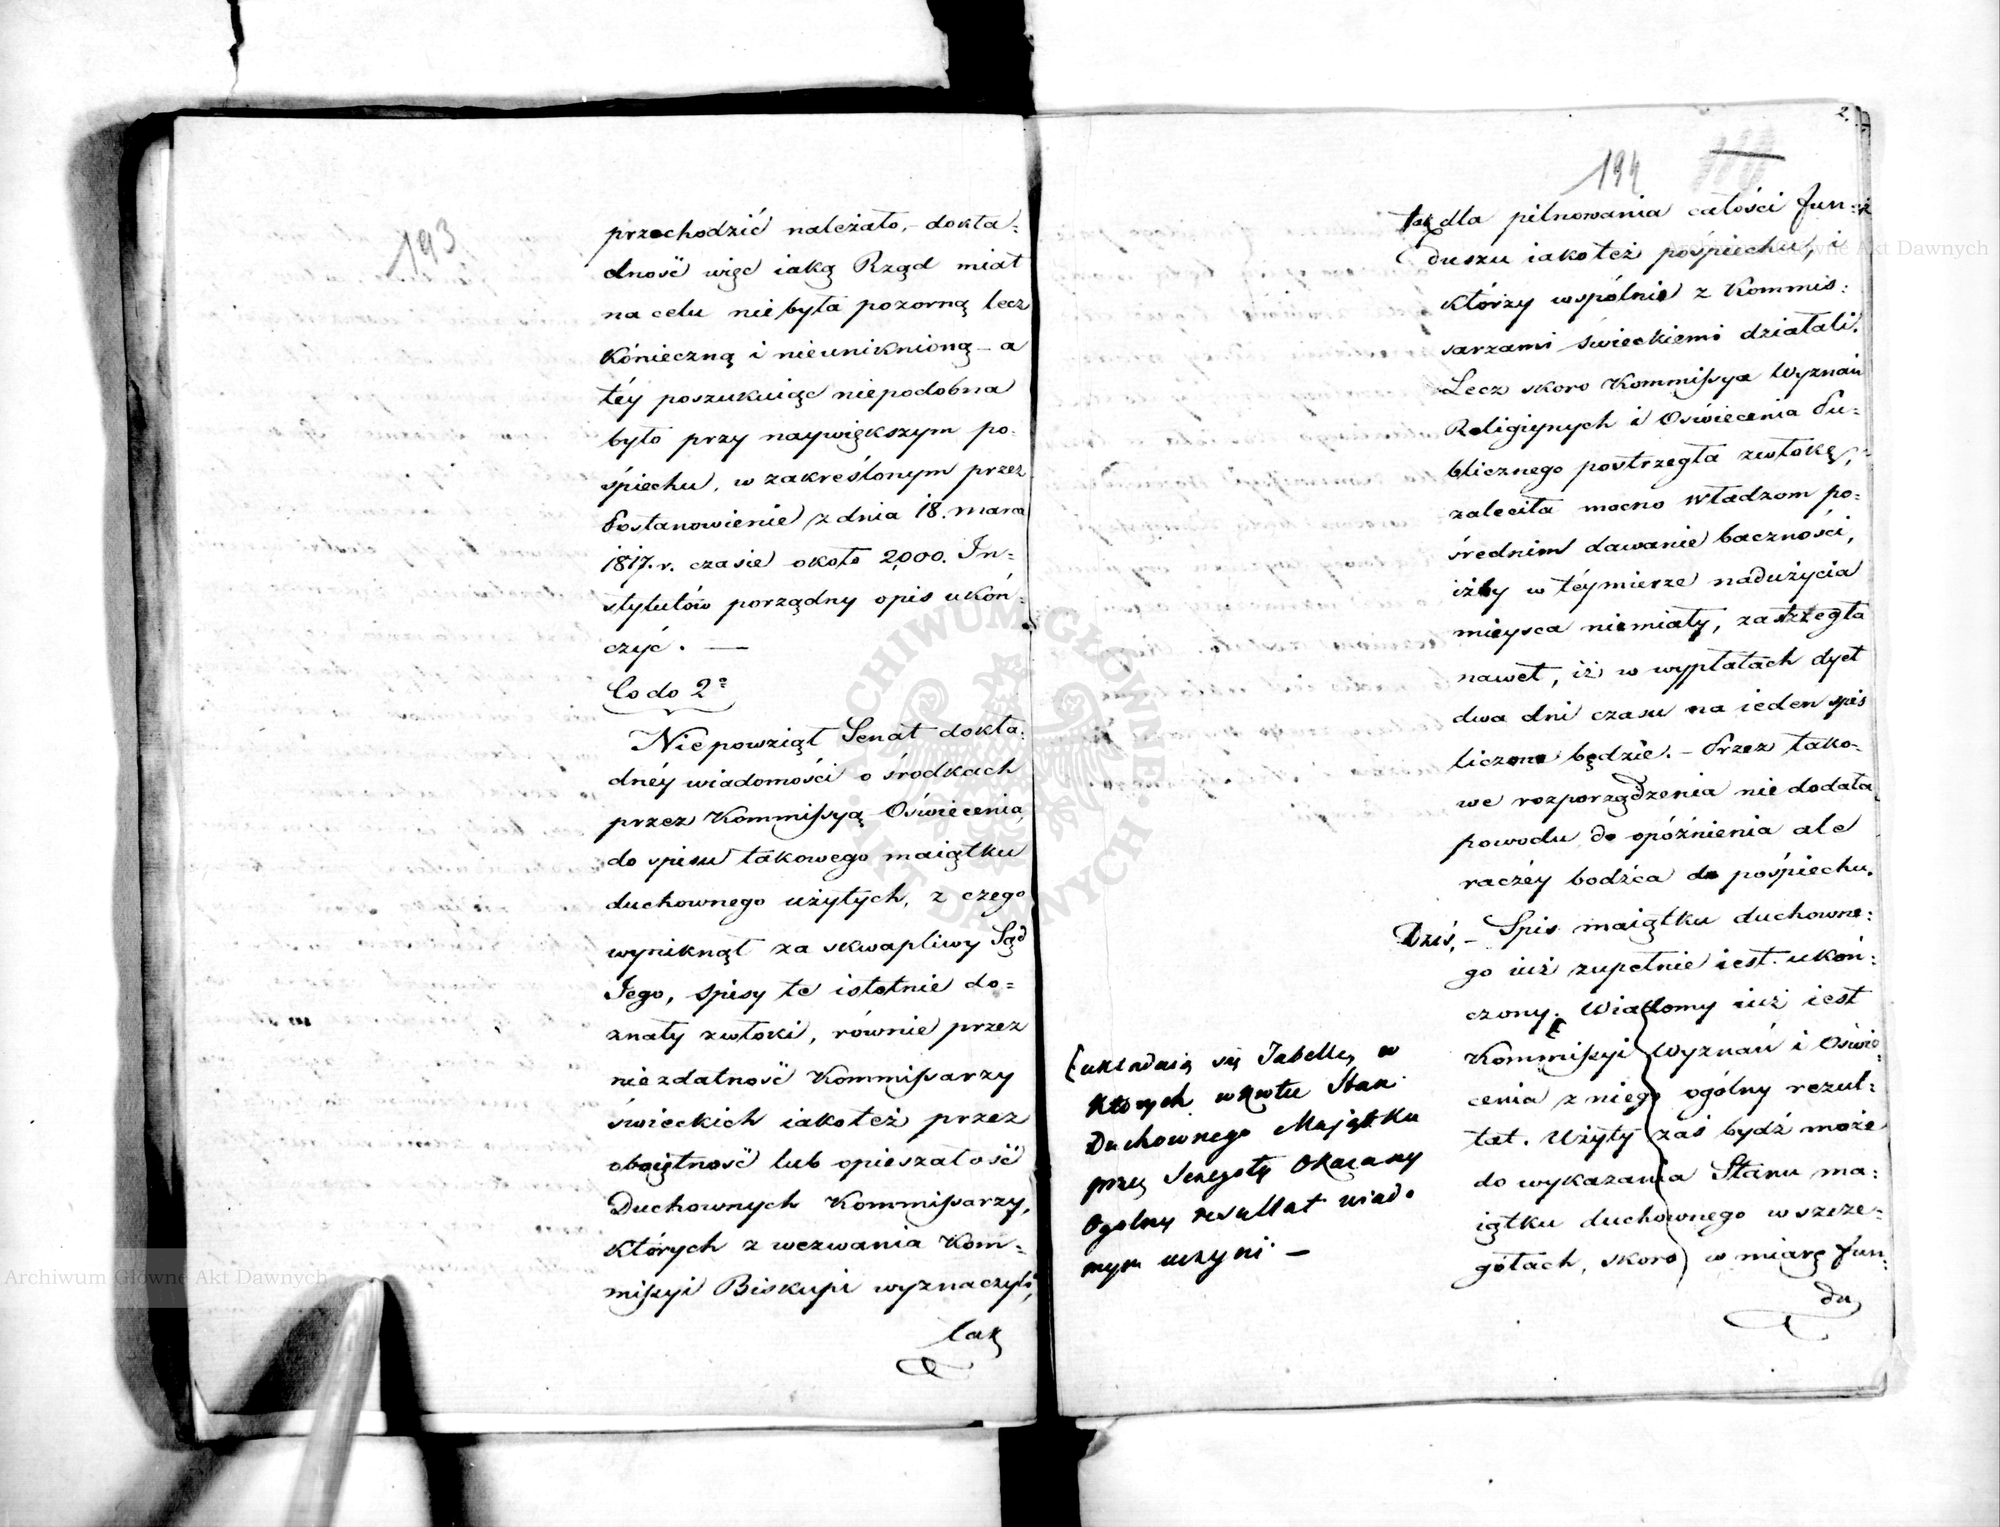 193
przechodzić należało, – dokła=
dność więc iaką Rząd miał
na celu nie była pozorną lecz
konieczną i nieuniknioną – a
téy poszukuiąc niepodobna
było przy naywiększym po=
śpiechu, w zakreślonym przez
Postanowienie z dnia 18. marca
1817. r. czasie około 2,000. In=
stytutów porządny opis ukoń=
czyć. —
Co do 2º
Nie powziął Senat dokła=
dnéy wiadomości o środkach
przez Kommissyą Oświecenia
do spisu takowego maiątku
duchownego użytych, z czego
wyniknął za skwapliwy Sąd
Jego, Spisy te istotnie do=
znały zwłoki, równie przez
niezdatność Kommissarzy
świeckich iakoteż przez
oboiętność lub opieszałość
Duchownych Kommissarzy,
których z wezwania Kom=
missyi Biskupi wyznaczyli,
tak
2.
194
tak dla pilnowania całości fun=
duszu iakoteż pośpiechu, i
którzy wspólnie z Kommis=
sarzami świeckiemi działali.
Lecz skoro Kommissya Wyznań
Religiynych i Oświecenia Pu=
blicznego postrzegła zwłokę,
zaleciła mocno Władzom po=
średnim dawanie baczności,
iżby w téy mierze nadużycia
mieysca nie miały, zastrzegła
nawet, iż w wypłatach dyet
dwa dni czasu na ieden spis
liczone będzie. – Przez tako=
we rozporządzenia nie dodała
powodu do opóźnienia ale
raczéy bodźca do pośpiechu.
Dziś, – Spis maiątku duchowne=
go iuż zupełnie iest ukoń=
czony. Wiadomy iuż iest
Kommissyi Wyznań i Oświe=
cenia z niego ogólny rezul=
tat. Użyty zaś bydź może
do wykazania Stanu ma=
iątku duchownego w szcze=
gółach, skoro w miarę fun=
du
[układaią się Tabelle, w
których Stan
Duchownego Majątku
przez Okazany
Ogólny resultat wiado
mym uczyni –
Archiwum Główne Akt Dawnych
Archiwum Główne Akt Dawnych
ARCHIWUM GŁÓWNE AKT DAWNYCH